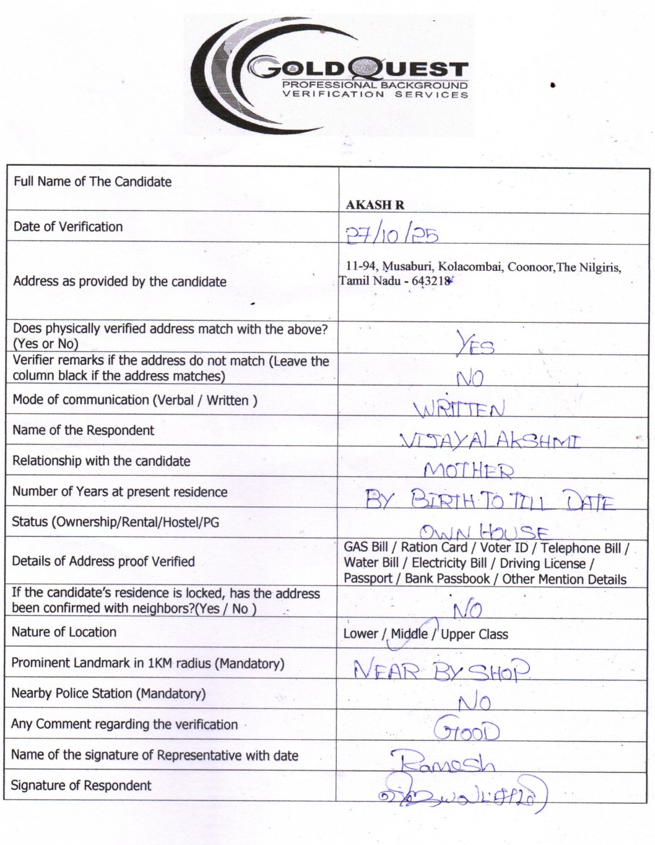 GOLDQUEST
PROFESSIONAL BACKGROUND
VERIFICATION SERVICES
Full Name of The Candidate
AKASH R
Date of Verification
27/10/25
Address as provided by the candidate
11-94, Musaburi, Kolacombai, Coonoor,The Nilgiris,
Tamil Nadu - 643218
Does physically verified address match with the above?
(Yes or No)
YES
Verifier remarks if the address do not match (Leave the
column black if the address matches)
NO
Mode of communication (Verbal / Written )
WRITTEN
Name of the Respondent
VIJAYALAKSHMI
Relationship with the candidate
MOTHER
Number of Years at present residence
BY BIRTH TO TILL DATE
Status (Ownership/Rental/Hostel/PG
OWN HOUSE
Details of Address proof Verified
GAS Bill / Ration Card / Voter ID / Telephone Bill /
Water Bill / Electricity Bill / Driving License /
Passport / Bank Passbook / Other Mention Details
If the candidate's residence is locked, has the address
been confirmed with neighbors?(Yes / No )
NO
Nature of Location
Lower / Middle / Upper Class
Prominent Landmark in 1KM radius (Mandatory)
NEAR BY SHOP
Nearby Police Station (Mandatory)
NO
Any Comment regarding the verification
GOOD
Name of the signature of Representative with date
Ramesh
Signature of Respondent